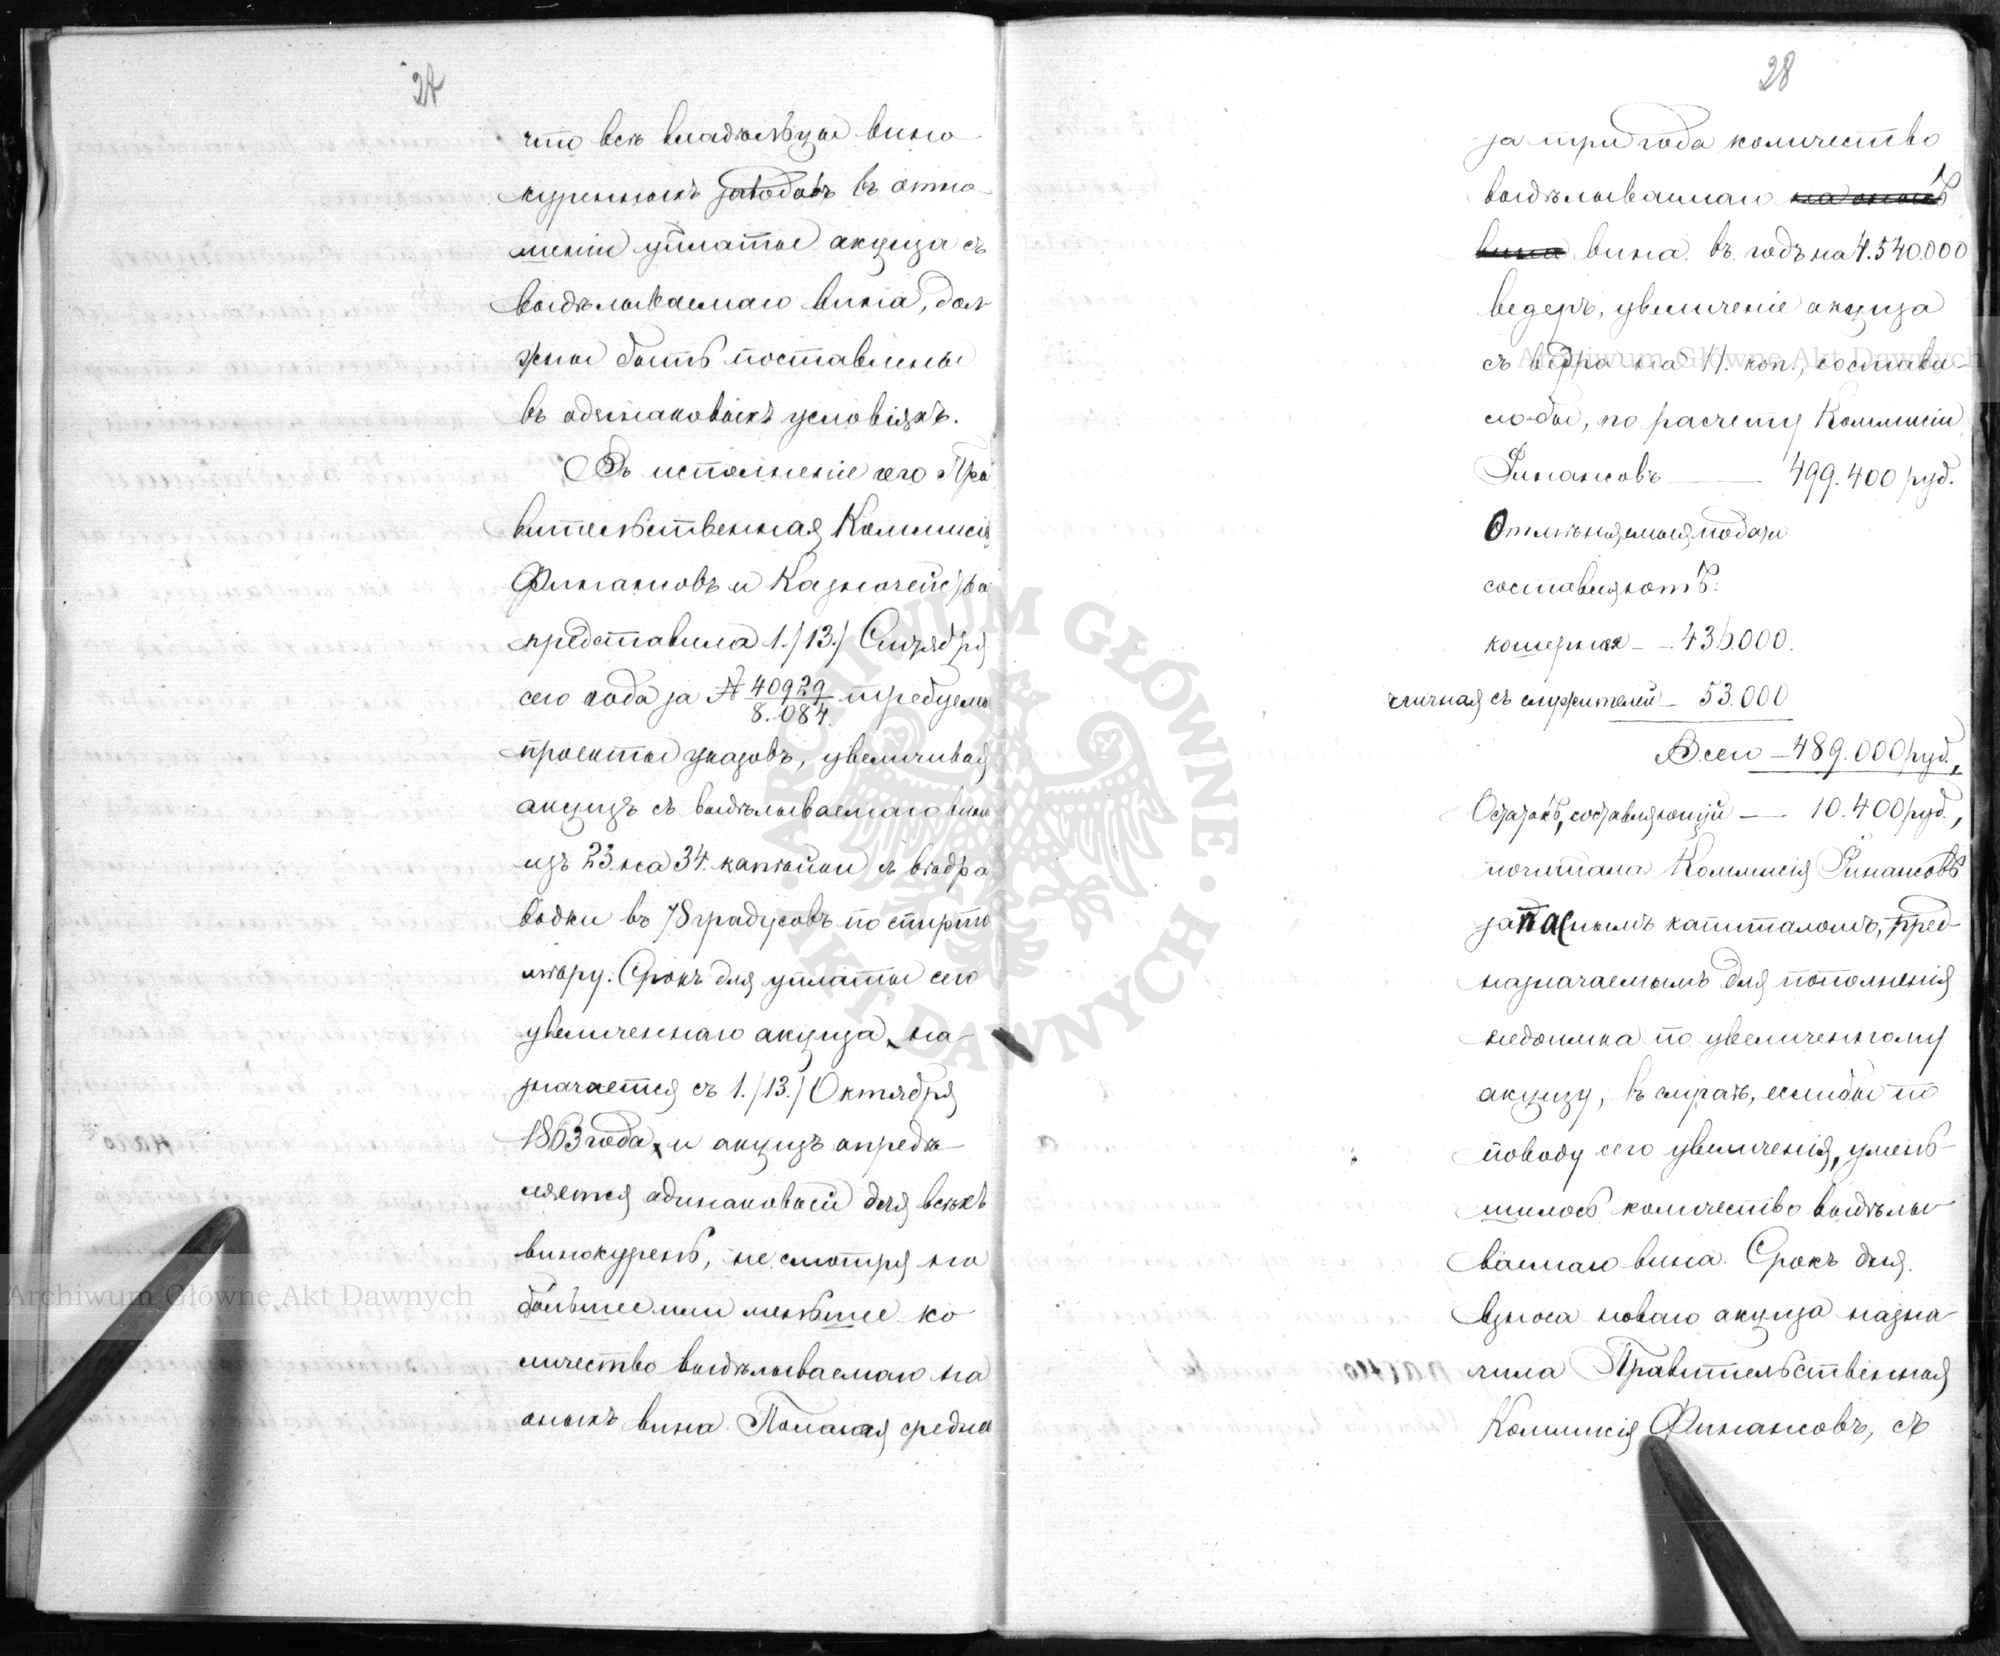 27
что всѣ владѣльцы вино
куренныхъ заводовъ въ отно
шеніи уплаты акциза съ
выдѣлываемаго вина, дол
жны быть поставлены
въ одинаковыхъ условіяхъ.
Въ исполненіе сего Пра
вительственная Коммисія
Финансовъ и Казначейства
представила 1./13./ Сентября
сего года за № 40929/8.084. требуемые
проекты указовъ, увеличивая
акцизъ съ выдѣлываемаго вина
изъ 23. на 34. копѣйки съ ведра
водки въ 78 градусовъ по спирто
мѣру. Срокъ для уплаты сего
увеличеннаго акциза, на-
значается съ 1./13./ Октября
1863 года, и акцизъ опредѣ-
ляется одинаковый для всѣхъ
винокурень, не смотря на
большее или меньшее ко
личество выдѣлываемаго на
оныхъ вина. Полагая средно
28
за три года количество
выдѣлываемаго на оныхъ
вина вина въ годъ на 4.540.000
ведеръ, увеличеніе акциза
съ ведра на 11. коп., состави-
ло-бы, по расчету Коммисіи
Финансовъ — 499.400 руб.
Отмѣняемыя подати
составляютъ:
кошерная — 436.000.
личная съ служителей — 53.000
Всего — 489.000 руб.,
Остатокъ, составляющій — 10.400 руб.,
почитала Коммисія Финансовъ
запаснымъ капиталомъ, пред-
назначаемымъ для пополненія
недоимка по увеличенному
акцизу, въ случаѣ, еслибы по
поводу сего увеличенія, умень-
шилось количество выдѣлы
ваемаго вина. Срокъ для
взноса новаго акциза назна
чила Правительственная
Коммисія Финансовъ, съ
Archiwum Główne Akt Dawnych
Archiwum Główne Akt Dawnych
ARCHIWUM GŁÓWNE · AKT DAWNYCH ·